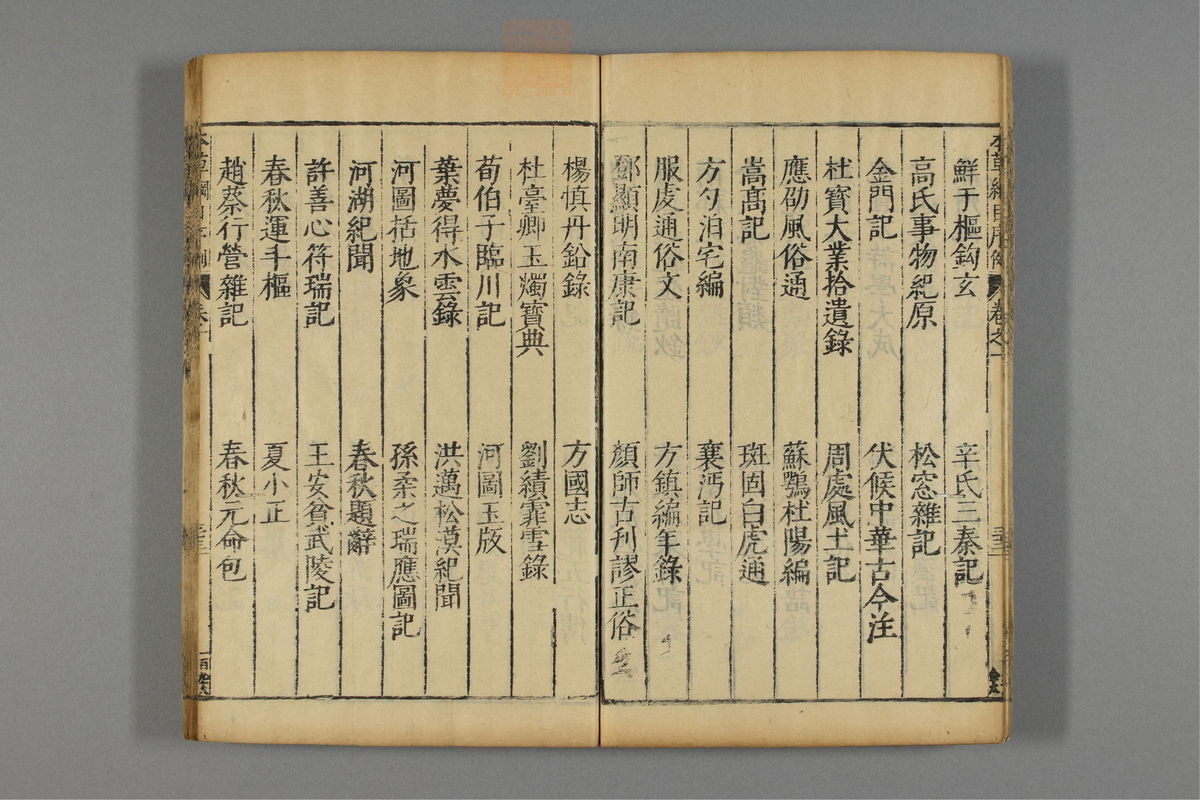 鮮于樞鈎玄　辛氏三秦記
高氏事物紀原　松窓雜記
金門記　伏候中華古今注
杜寶大業拾遺錄　周處風土記
應劭風俗通　蘇鶚杜陽編
嵩高記　班固白虎通
方勺泊宅編　襄沔記
服虔通俗文　方鎮編年錄
鄧顯明南康記　顏師古刋謬正俗
楊慎丹鉛錄　方國志
杜臺卿玉燭寶典　劉績霏雪錄
荀伯子臨川記　河圖玉版
葉夢得水雲錄　洪邁松漠紀聞
河圖括地象　孫柔之瑞應圖記
河湖紀聞　春秋題辭
許善心符瑞記　王安貧武陵記
春秋運斗樞　夏小正
趙蔡行營雜記　春秋元命包